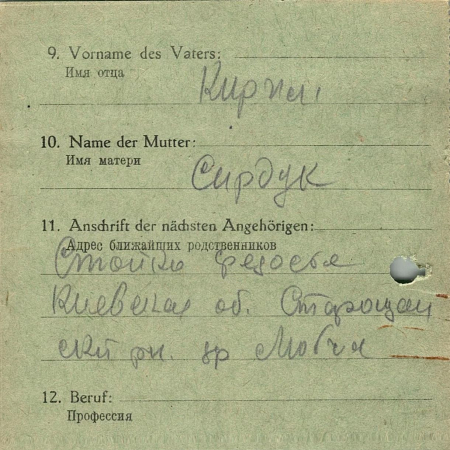 9. Vorname des Vaters:
Имя отца
Кирил
10. Name der Mutter:
Имя матери
Сирдук
11. Anschrift der nächsten Angehörigen:
Адрес ближайших родственников
Стойко федосья
Киевская об. Старощан
ский рн.
12. Beruf:
Профессия